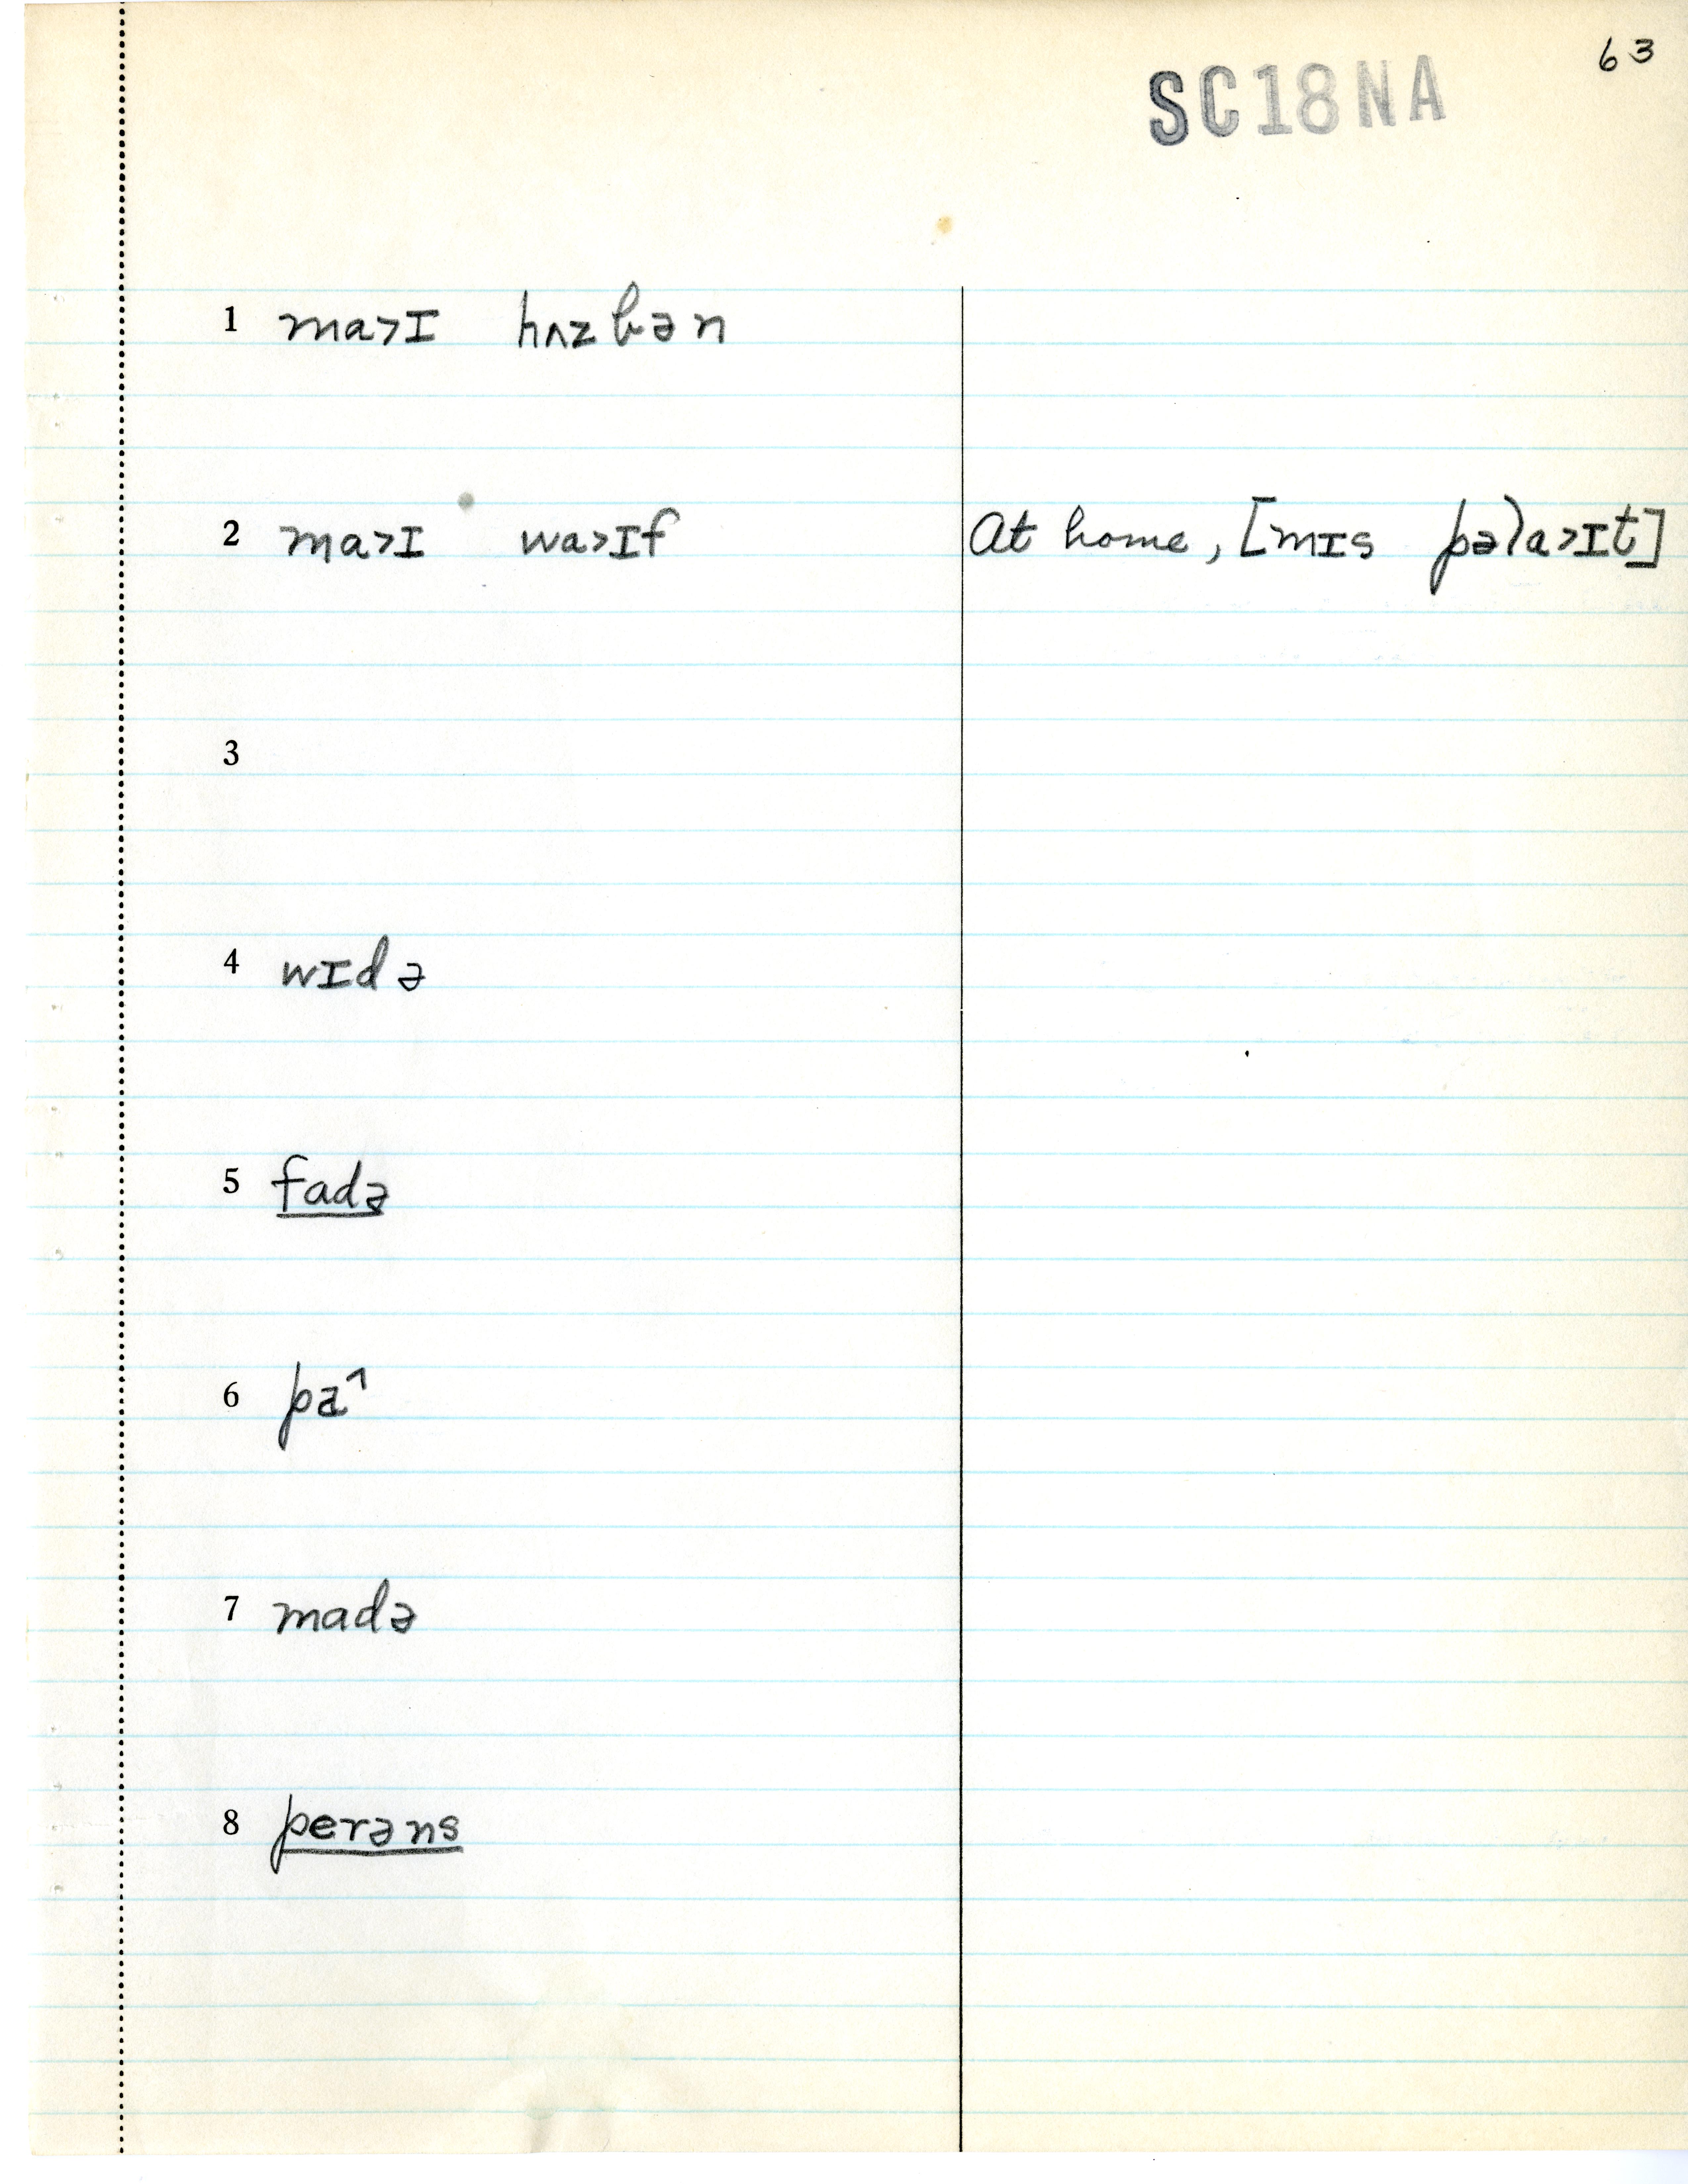 63
SC18NA
1 ma>ɪ hʌzbən
2 ma>ɪ wa>ɪf At home, [mɪs pəla>ɪt]
3
4 wɪdə
5 fadə
6
7 madə
8 perəns